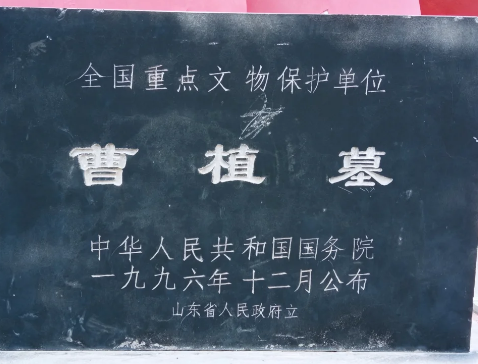 全国重点文物保护单位
曹植墓
中华人民共和国国务院
一九九六年十二月公布
山东省人民政府立